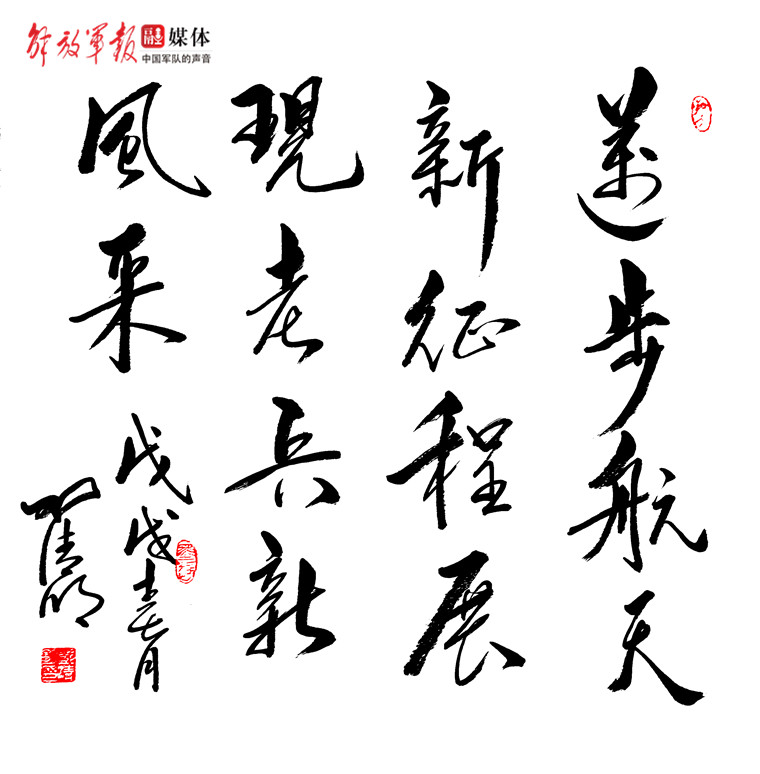 解放軍報 融媒体
中国军队的声音
邁步航天
新征程展
現老兵新
風采
戊戌